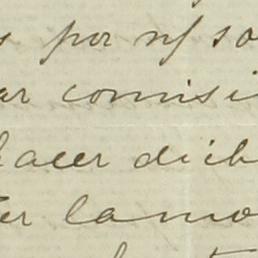 s por nſ so
ar comisi
hacer dich
ter la mo